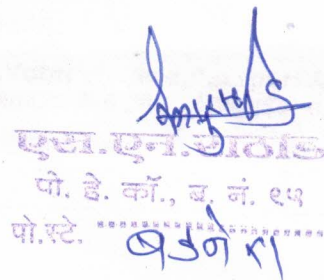 एस.एन.राठोड
पो. हे. कॉ., ब. नं. ९५
पो.स्टे. बडनेरा